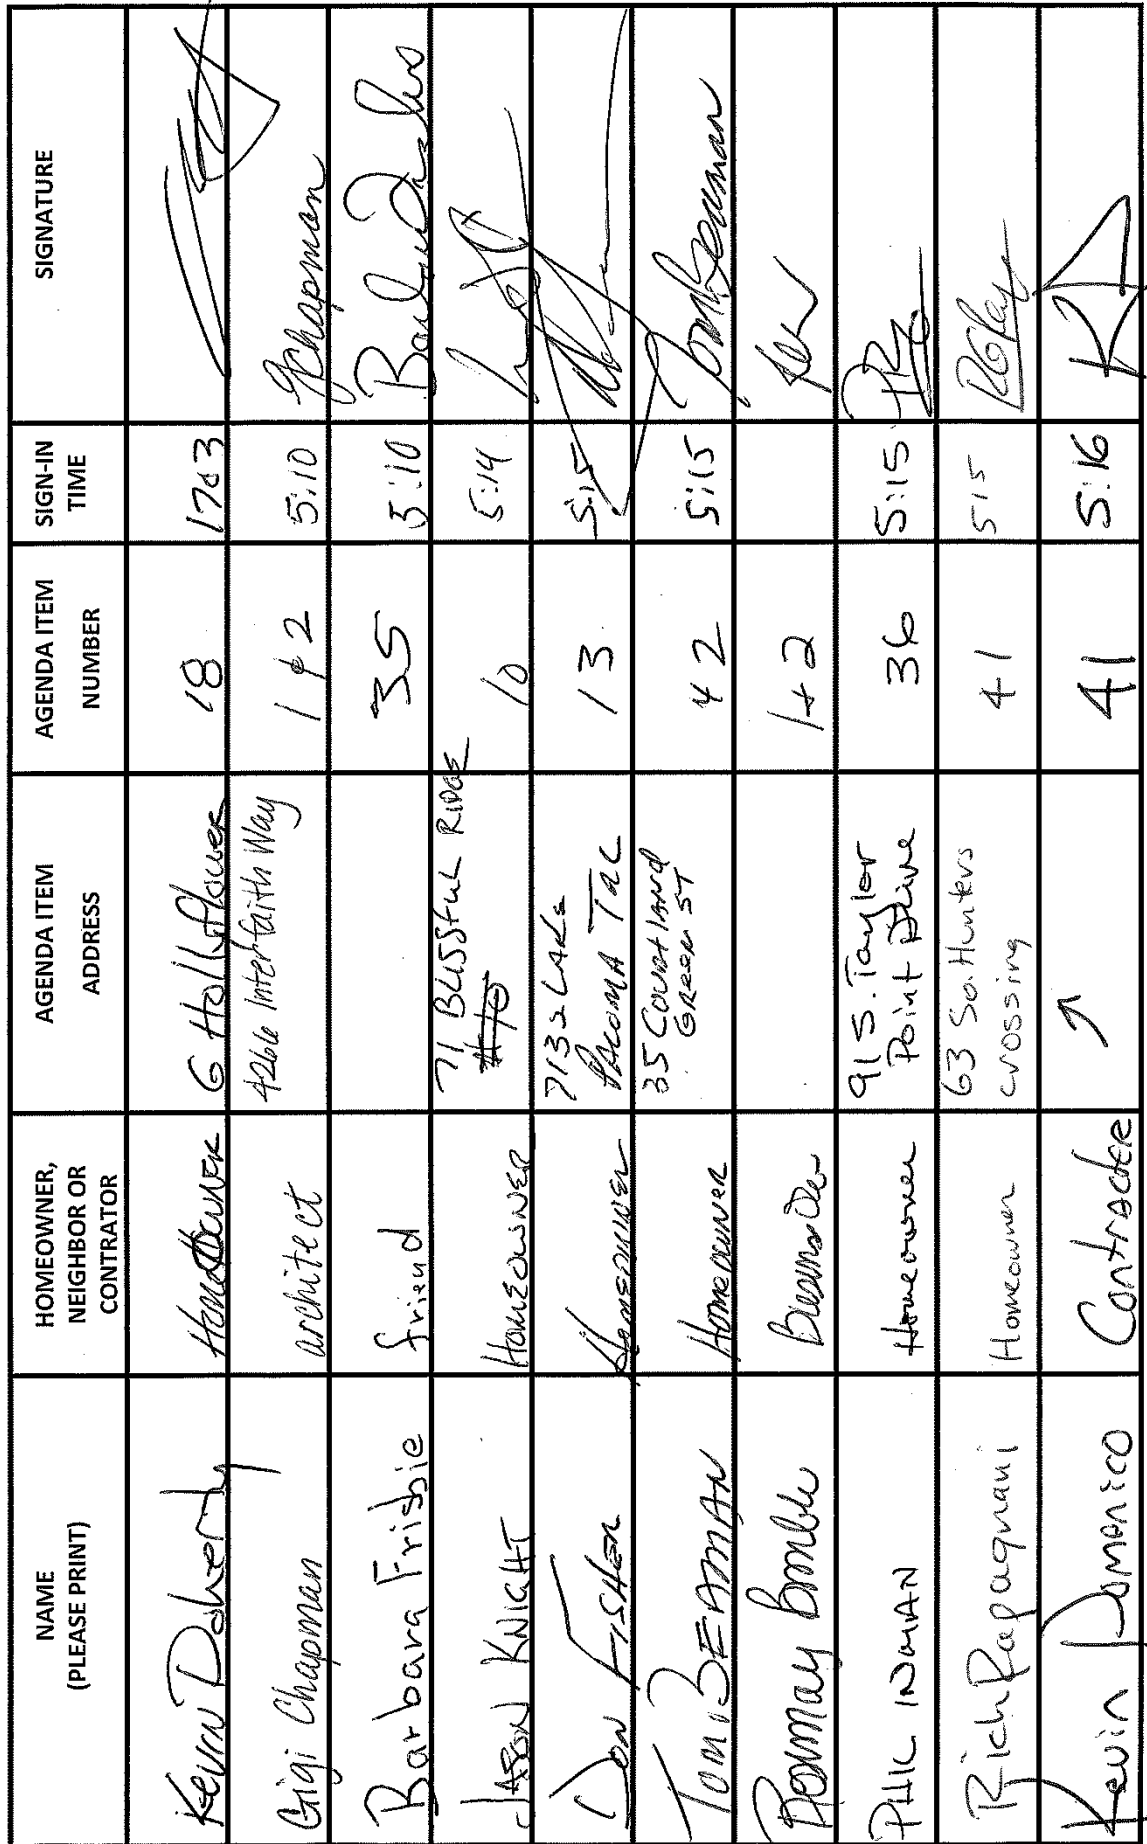 NAME
(PLEASE PRINT)
HOMEOWNER,
NEIGHBOR OR
CONTRATOR
AGENDA ITEM
ADDRESS
AGENDA ITEM
NUMBER
SIGN-IN
TIME
SIGNATURE
Kevin Doherty
HomeOwner
6 Hollyflower
18
1703
Gigi Chapman
architect
4266 Interfaith Way
1 & 2
5:10
GChapman
Barbara Frisbie
friend
35
5:10
JASON KNIGHT
HOMEOWNER
71 BLISSFUL RIDGE
10
5:14
DON FISHER
HOMEOWNER
7132 LAKE
PALOMA TRC
13
5:15
TOM BEAMAN
HOMEOWNER
35 Courtland
GREEN ST
42
5:15
Tom Beaman
1+2
PHIL INMAN
Homeowner
91 S. Taylor
Point Drive
36
5:15
Rich Rapagnani
Homeowner
63 So. Hunters
crossing
41
515
Kevin Domanico
Contractor
↗
41
5:16